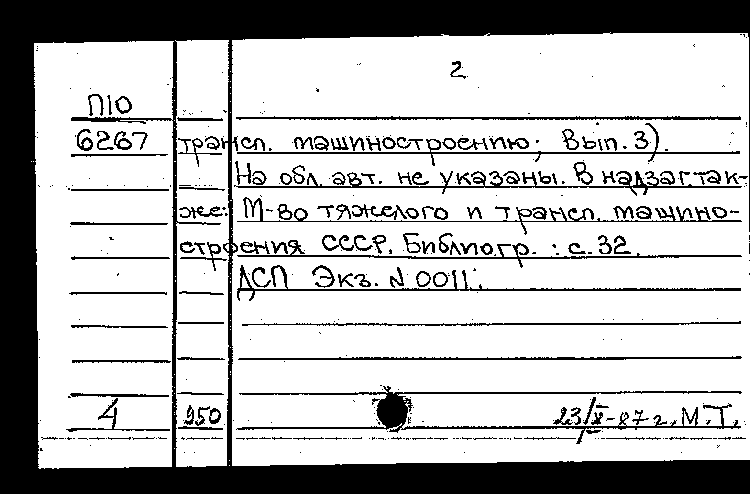 2
П10
6267 трансп. машиностроению; Вып. 3).
На обл. авт. не указаны. В надзаг. так-
же: М-во тяжелого и трансп. машино-
строения СССР. Библиогр.: с. 32.
ДСП Экз. N 0011.
4 950 23/X-87 г. М.Т.